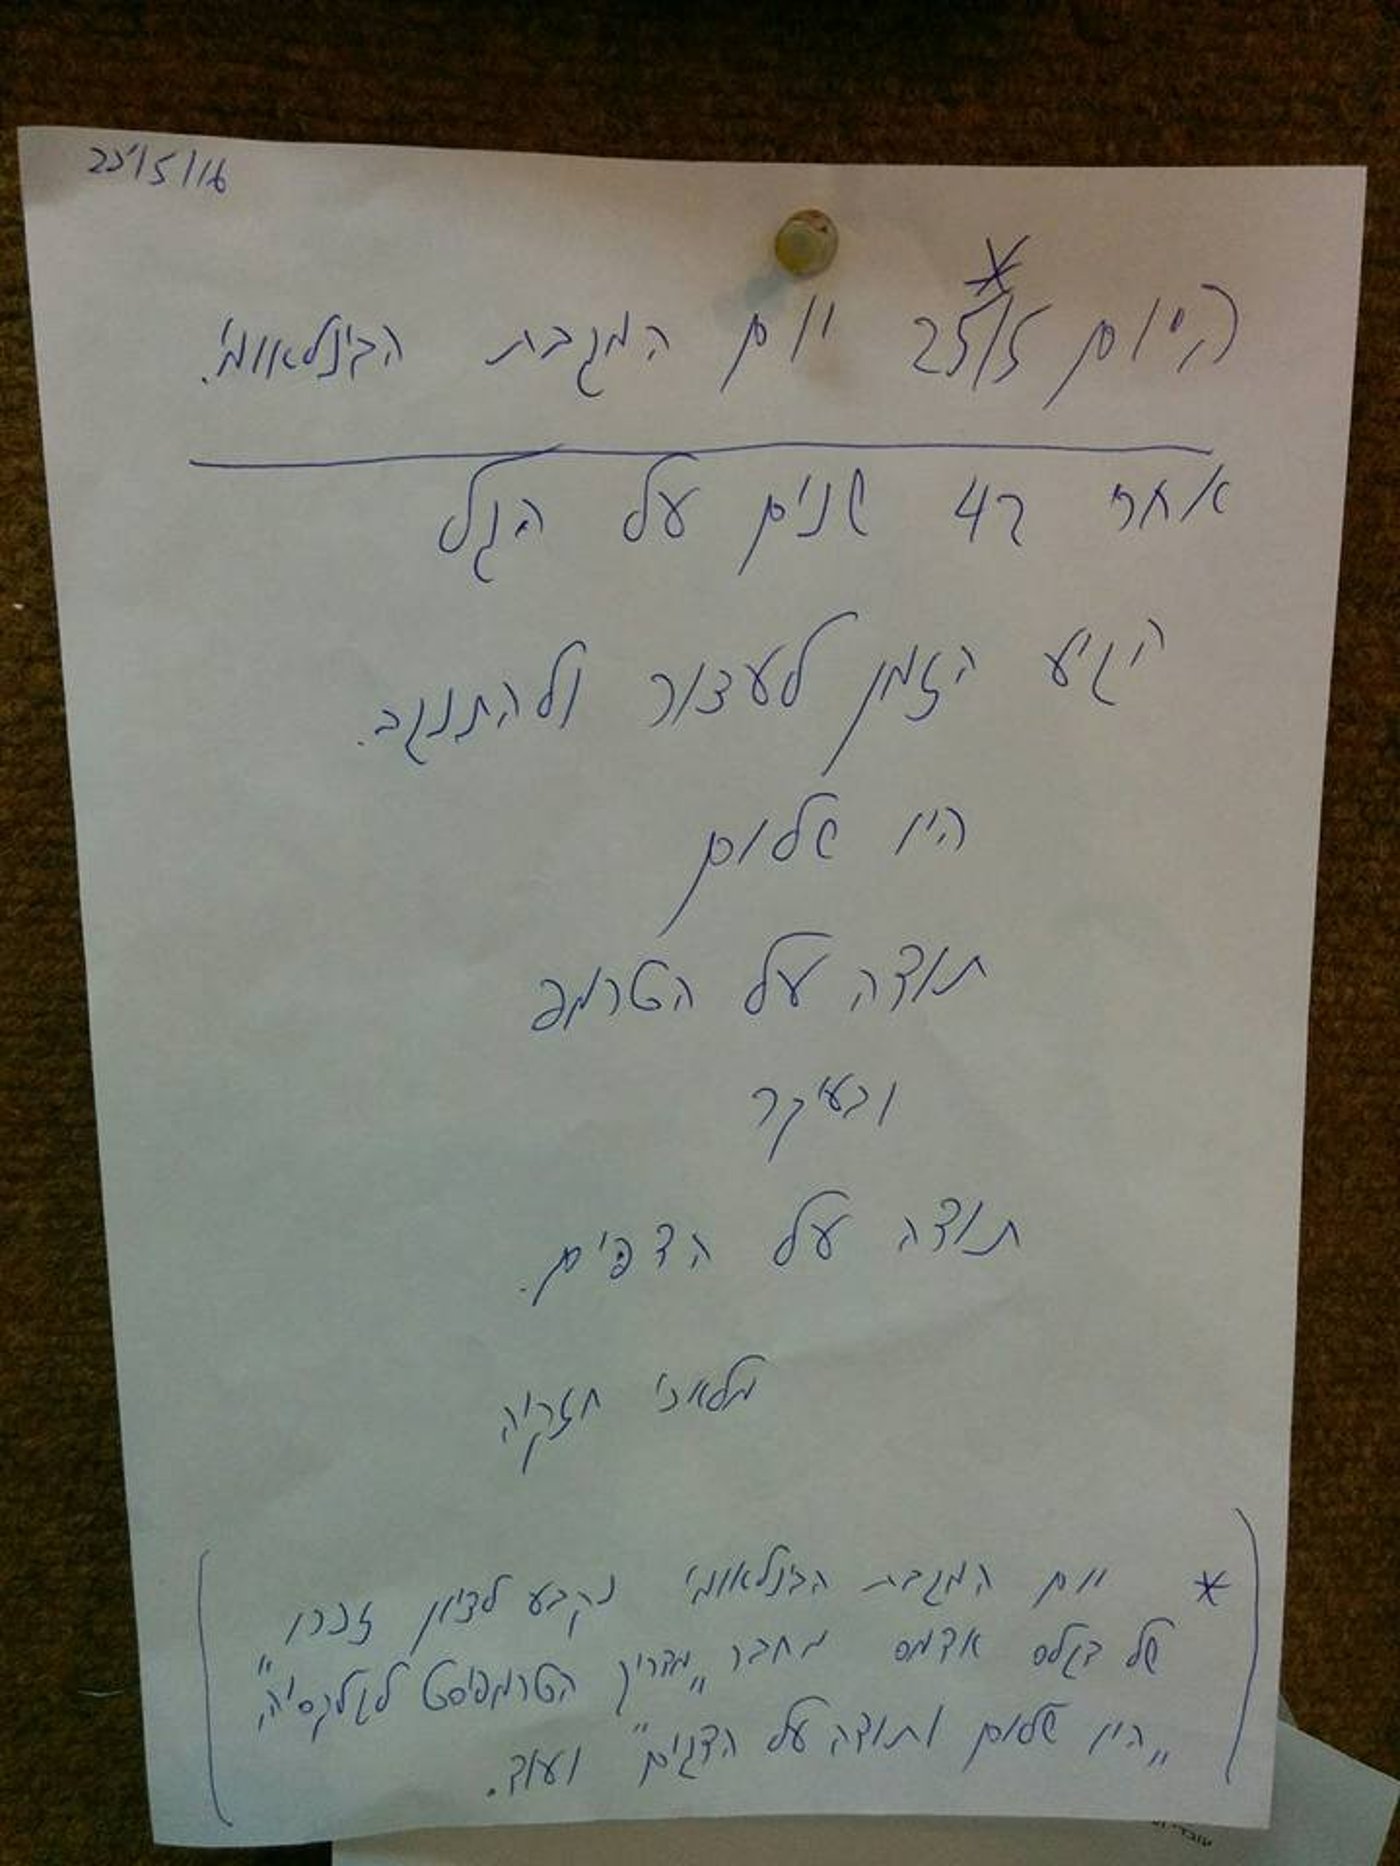 22/5/16
היום 25/5* יום המגבת הבינלאומי.
אחרי 42 שנים על הגל
הגיע הזמן לעצור ולהתנגב.
היו שלום
תודה על הטרמפ
ובעיקר
תודה על הדפים.
מלאכי חזקיה
* יום המגבת הבינלאומי נקבע לציון זכרו
של דגלס אדמס מחבר „מדריך הטרמפיסט לגלקסיה"
„היו שלום ותודה על הדגים" ועוד.